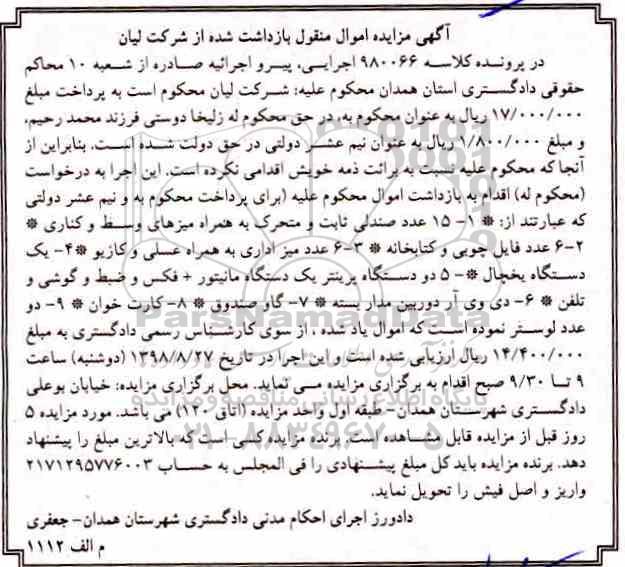 آگهی مزایده اموال منقول بازداشت شده از شرکت لیان
در پرونده کلاسه ۹۸۰۰۶۶ اجرایی، پیرو اجرائیه صادره از شعبه ۱۰ محاکم
حقوقی دادگستری استان همدان محکوم علیه: شرکت لیان محکوم است به پرداخت مبلغ
۱۷/۰۰۰/۰۰۰ ریال به عنوان محکوم به، در حق محکوم له زلیخا دوستی فرزند محمد رحیم،
و مبلغ ۱/۸۰۰/۰۰۰ ریال به عنوان نیم عشر دولتی در حق دولت شده است. بنابراین از
آنجا که محکوم علیه نسبت به برائت ذمه خویش اقدامی نکرده است. این اجرا به درخواست
(محکوم له) اقدام به بازداشت اموال محکوم علیه (برای پرداخت محکوم به و نیم عشر دولتی
که عبارتند از: * ۱- ۱۵ عدد صندلی ثابت و متحرک به همراه میزهای وسط و کناری *
۲-۶ عدد فایل چوبی و کتابخانه * ۳-۶ عدد میز اداری به همراه عسلی و کازیو *۴- یک
دستگاه یخچال *- ۵ دو دستگاه پرینتر یک دستگاه مانیتور + فکس و ضبط و گوشی و
تلفن * ۶- دی وی آر دوربین مدار بسته * ۷- گاو صندوق * ۸- کارت خوان * ۹- دو
عدد لوستر نموده است که اموال یاد شده ، از سوی کارشناس رسمی دادگستری به مبلغ
۱۴/۴۰۰/۰۰۰ ریال ارزیابی شده است و این اجرا در تاریخ ۱۳۹۸/۸/۲۷ (دوشنبه) ساعت
۹ تا ۹/۳۰ صبح اقدام به برگزاری مزایده می نماید. محل برگزاری مزایده: خیابان بوعلی
دادگستری شهرستان همدان- طبقه اول واحد مزایده (اتاق ۱۲۰) می باشد. مورد مزایده ۵
روز قبل از مزایده قابل مشاهده است. برنده مزایده کسی است که بالاترین مبلغ را پیشنهاد
دهد. برنده مزایده باید کل مبلغ پیشنهادی را فی المجلس به حساب ۲۱۷۱۲۹۵۷۷۶۰۰۳
واریز و اصل فیش را تحویل نماید.
دادورز اجرای احکام مدنی دادگستری شهرستان همدان- جعفری
م الف ۱۱۱۲
ParsNamadData
پایگاه اطلاع رسانی مناقصه و مزایده
۰۲۱-۸۸۳۴۹۶۷۰-۵